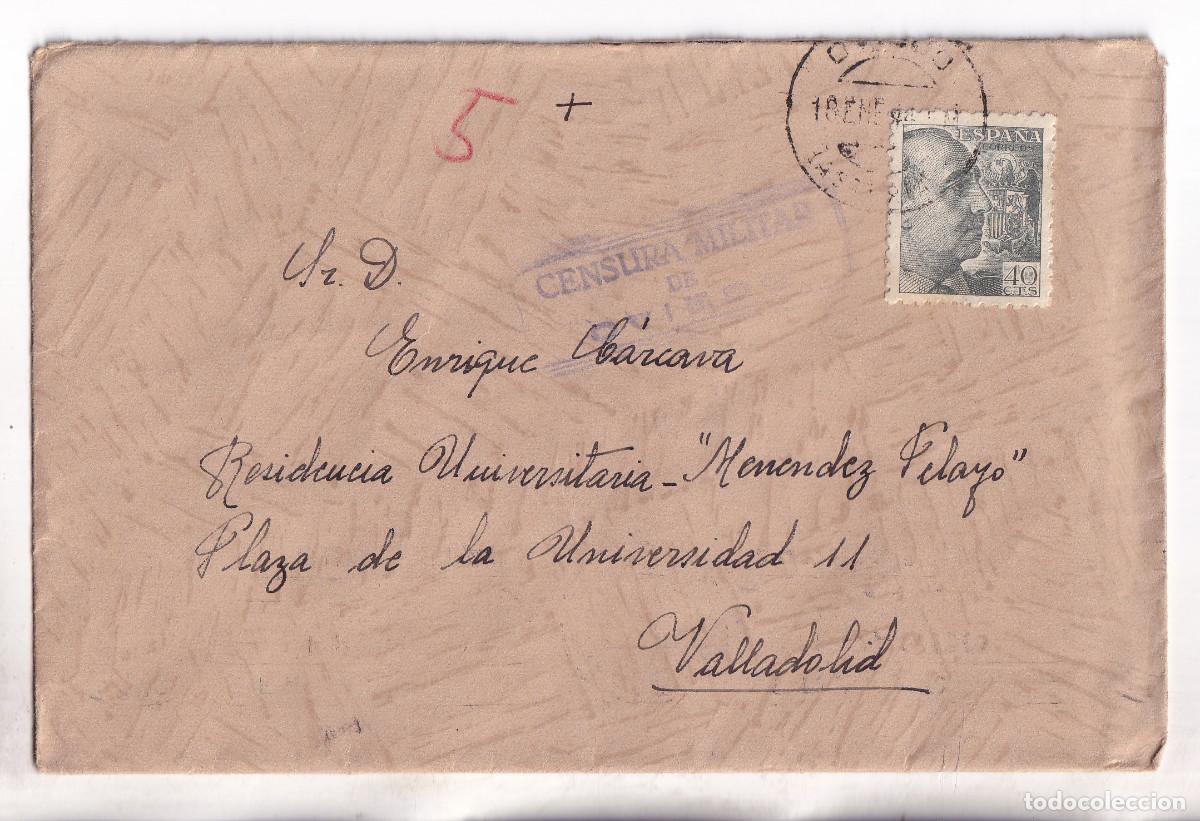 5 +
18 ENE
ESPAÑA
CORREOS
40
CTS
CENSURA MILITAR
DE
Sr. D.
Enrique Cárcava
Residencia Universitaria - "Menendez Pelayo"
Plaza de la Universidad 11
Valladolid
todocoleccion